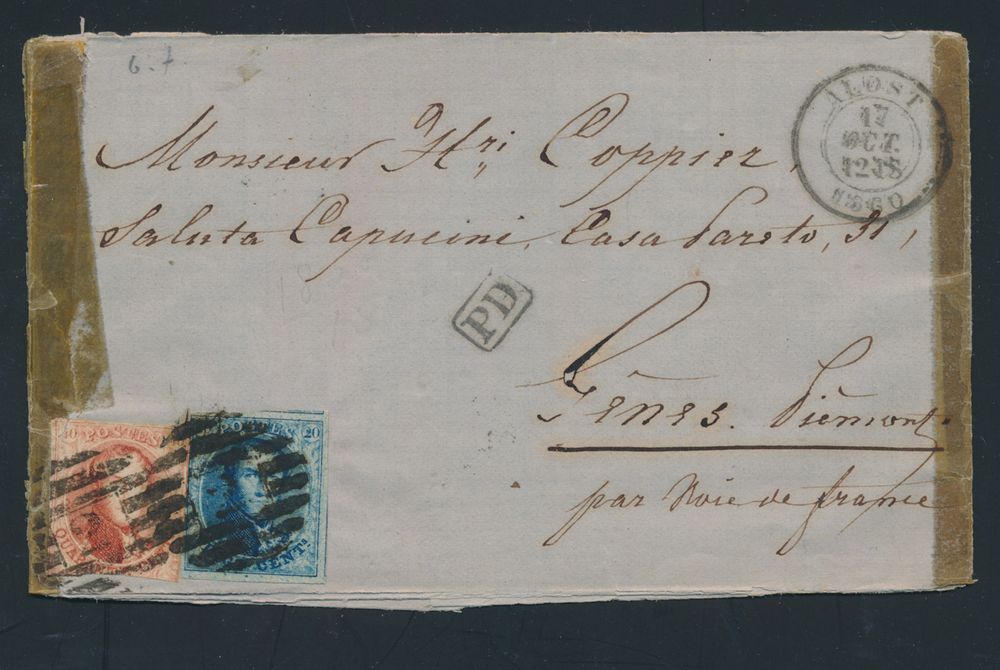 6.7.
ALOST
17
OCT.
12-1S
1860
Monsieur Hri Coppier,
Saluta Capucini, Casa Pareto, 31,
PD
Gênes. Piémont.
par Voie de france
40 POSTES
QUARANTE
POSTES 20
CENTS